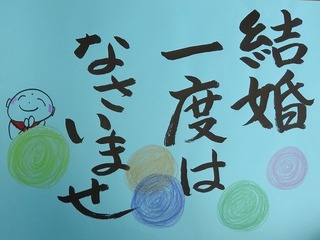 結婚
一度は
なさいませ